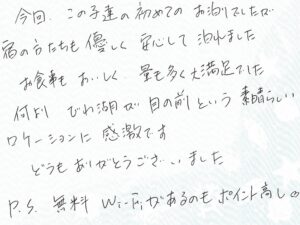 今回、この子達の初めてのお泊りでしたが
宿の方たちも優しく安心して泊れました
お食事もおいしく量も多く大満足でした
何よりびわ湖が目の前という素晴らしい
ロケーションに感激です
どうもありがとうございました
P.S. 無料Wi-Fiがあるのもポイント高し